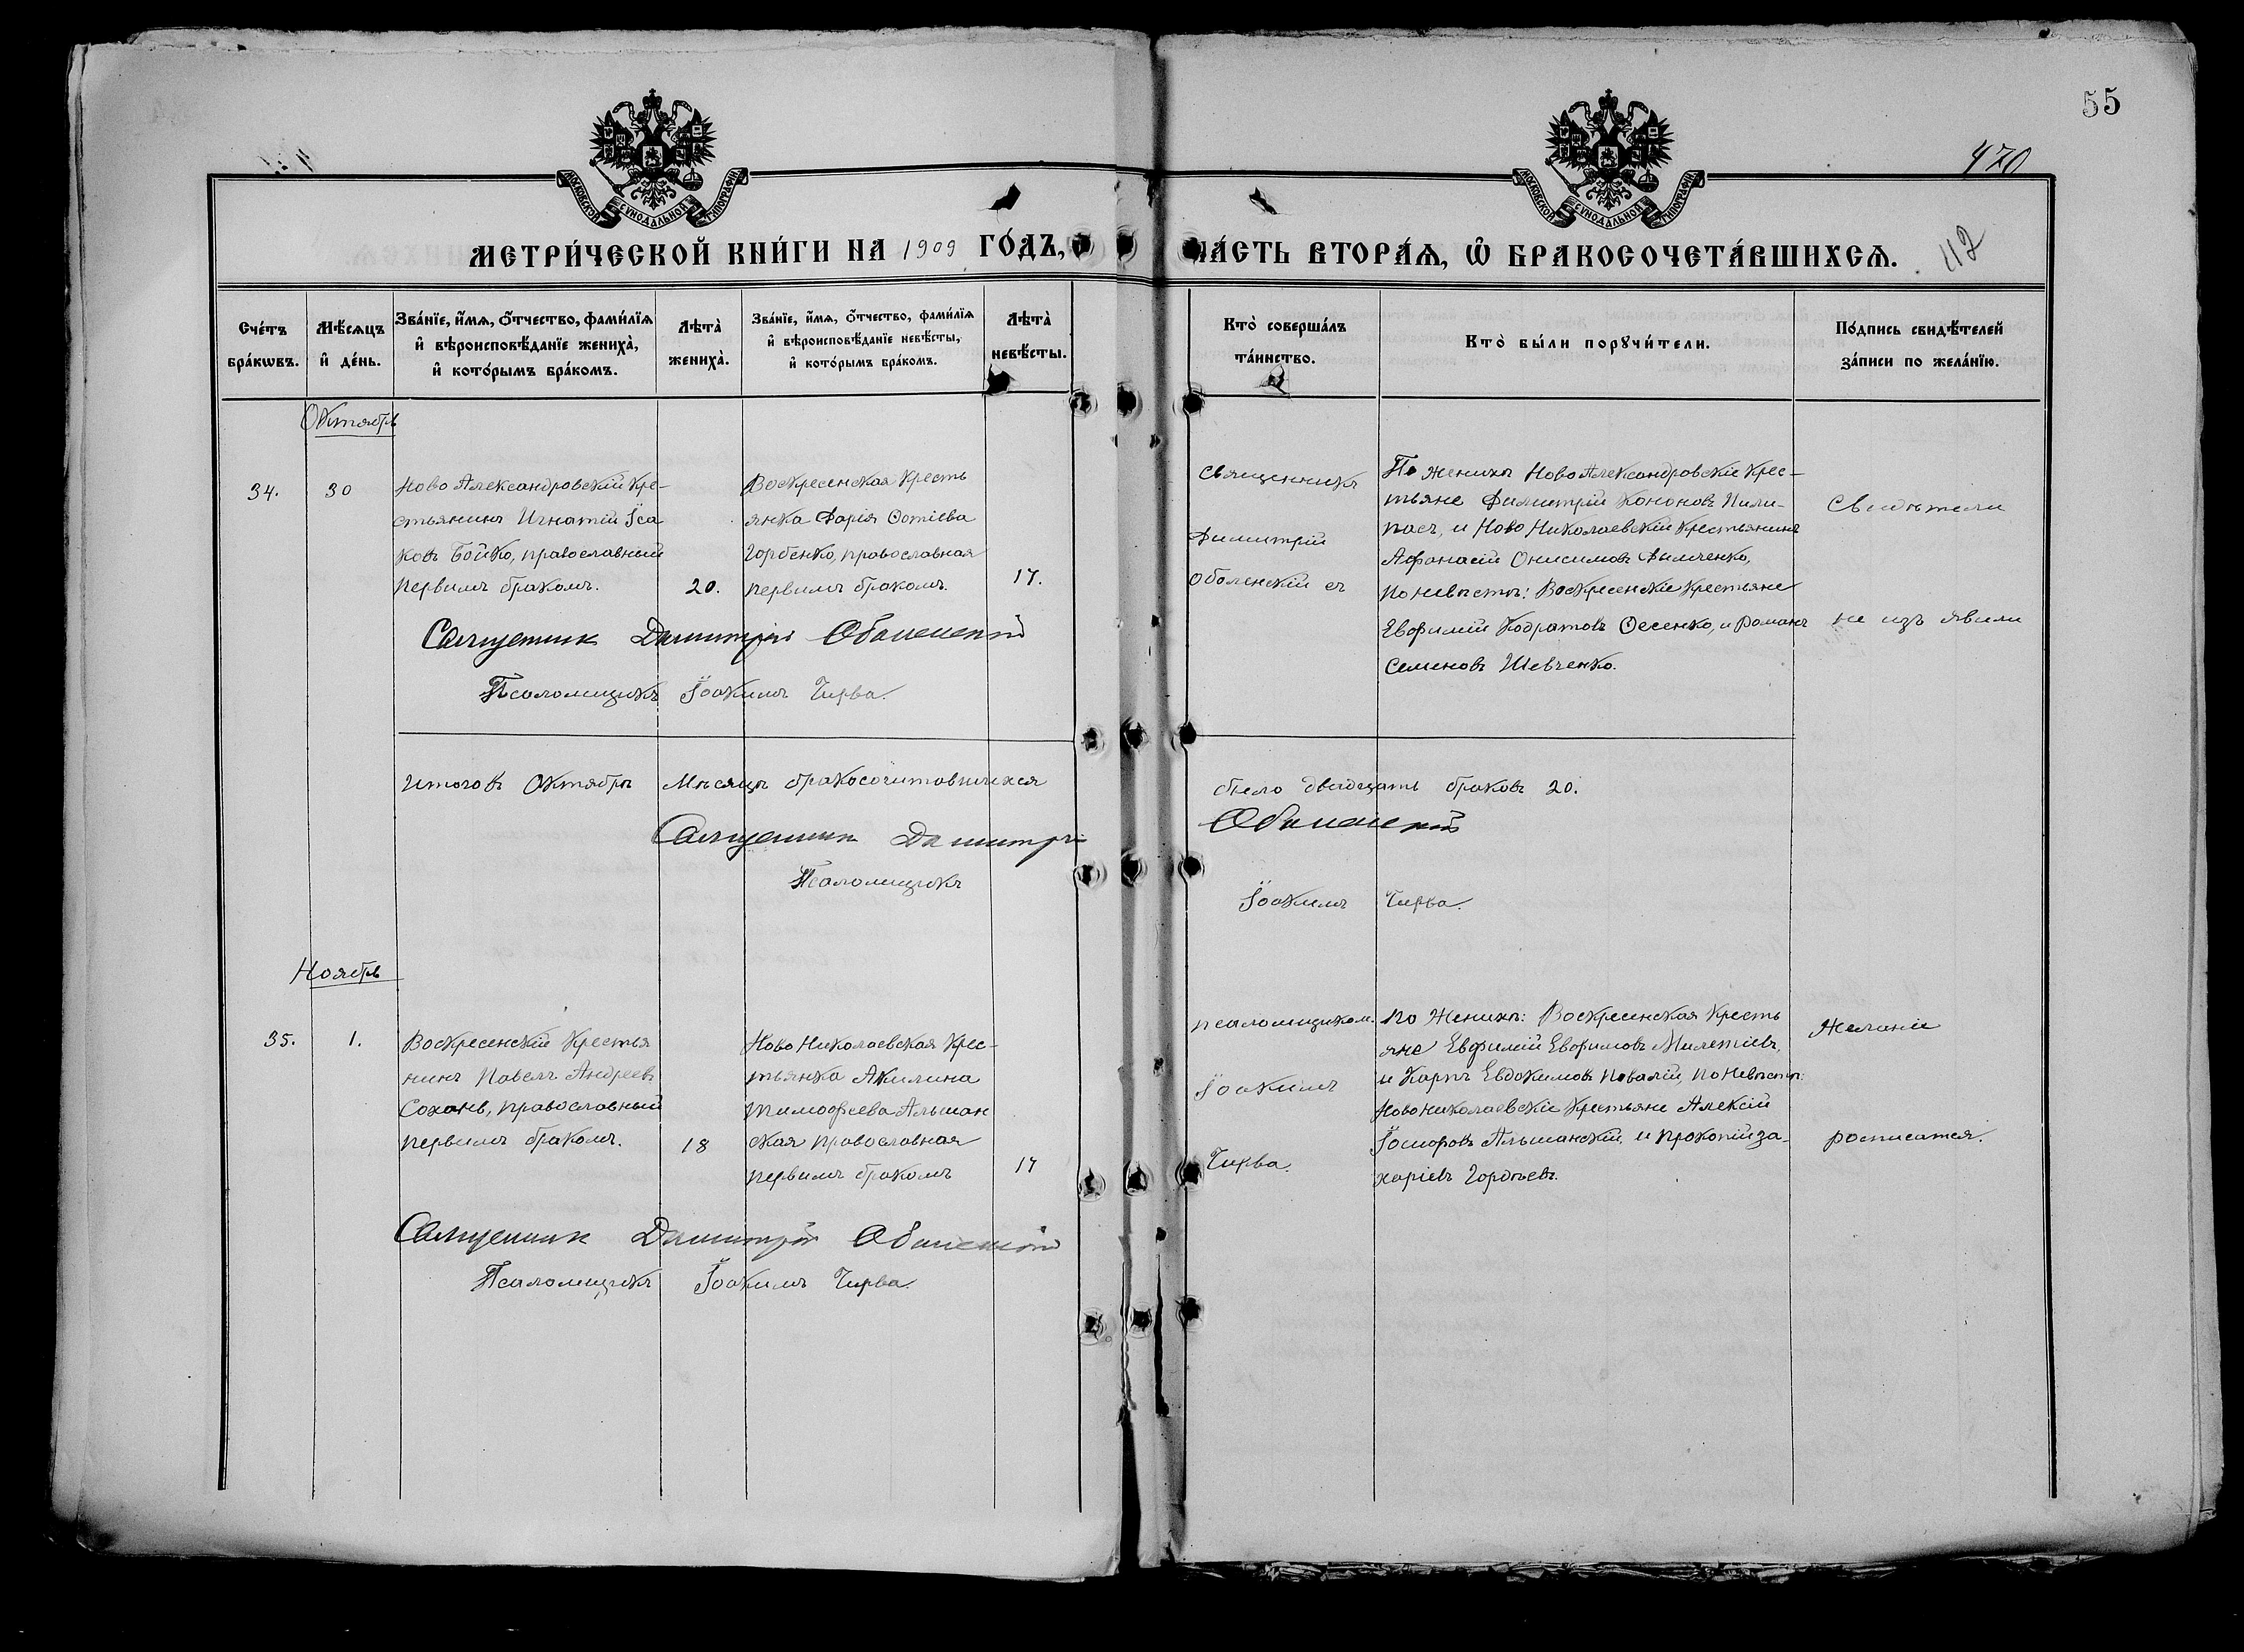 55
420
112
МОСКОВСКОЙ СѴНОДАЛЬНОЙ ТИПОГРАФІИ
МОСКОВСКОЙ СѴНОДАЛЬНОЙ ТИПОГРАФІИ
МЕТРИ́ЧЕСКОЙ КНИ́ГИ НА 1909 ГО́ДЪ, ЧА́СТЬ ВТОРА́Ѧ, Ѽ БРАКОСОЧЕТА́ВШИХСѦ.
Сче́тъ бра́кѡвъ.
Мѣ́сѧцъ и҆ де́нь.
Зва́нїе, и҆́мѧ, ѻ҆́тчество, фами́лїѧ и҆ вѣроисповѣ́данїе жениха̀, и҆ кото́рымъ бра́комъ.
Лѣта̀ жениха̀.
Зва́нїе, и҆́мѧ, ѻ҆́тчество, фами́лїѧ и҆ вѣроисповѣ́данїе невѣ́сты, и҆ кото́рымъ бра́комъ.
Лѣта̀ невѣ́сты.
Кто̀ соверша́лъ та́инство.
Кто̀ бы́ли порꙋчи́тели.
По́дпись свидѣ́телей за́писи по жела́нїю.
Октябрь
34.
30
Ново Александровскій Кре-
стьянинъ Игнатій Іса
ковъ Бойко, православный
первимъ бракомъ.
20.
Воскресенская Кресть
янка Дарія Фотіева
Горбенко, православная
первимъ бракомъ.
17.
Священникъ
Димитрій
Оболенскій съ
По женихѣ НовоАлександровскіе Крес-
тьяне Димитрій Кононовъ Пили-
пасъ, и Ново Николаевскій Крестьянинъ
Афанасій Онисимовъ Дымченко,
по невѣстѣ: Воскресенскіе Крестьяне
Евфимій Кодратовъ Фесенко, и Романъ
Семеновъ Шевченко.
Свидѣтели
не изъ явили
Священник Димитрій Оболенскій
Псаломщикъ Іоакимъ Чирва.
Итого въ Октябрѣ Мѣсяцѣ бракосочитовшихся было двадцать браковъ 20.
Священник Димитрій Оболенскій
Псаломщикъ Іоакимъ Чирва.
Ноябрь
35.
1.
Воскресенскій Крестья
нинъ Павелъ Андреевъ
Сохань, православный
первимъ бракомъ.
18
Ново Николаевская Крес-
тьянка Акилина
Тимофеева Альшан
ская православная
первимъ бракомъ
17
псаломщиком.
Іоакимъ
Чирва.
По Женихѣ: Воскресенская Кресть
яне Евфимій Евфимовъ Милетіевъ,
и Карпъ Евдокимовъ Повалій, по Невѣстѣ:
Ново Николаевскіе Крестьяне Алексій
Іосифовъ Альшанскій, и Прокопій За-
харіевъ Гордѣевъ.
Желаніе
росписатся.
Священник Димитрій Оболенскій
Псаломщикъ Іоакимъ Чирва.